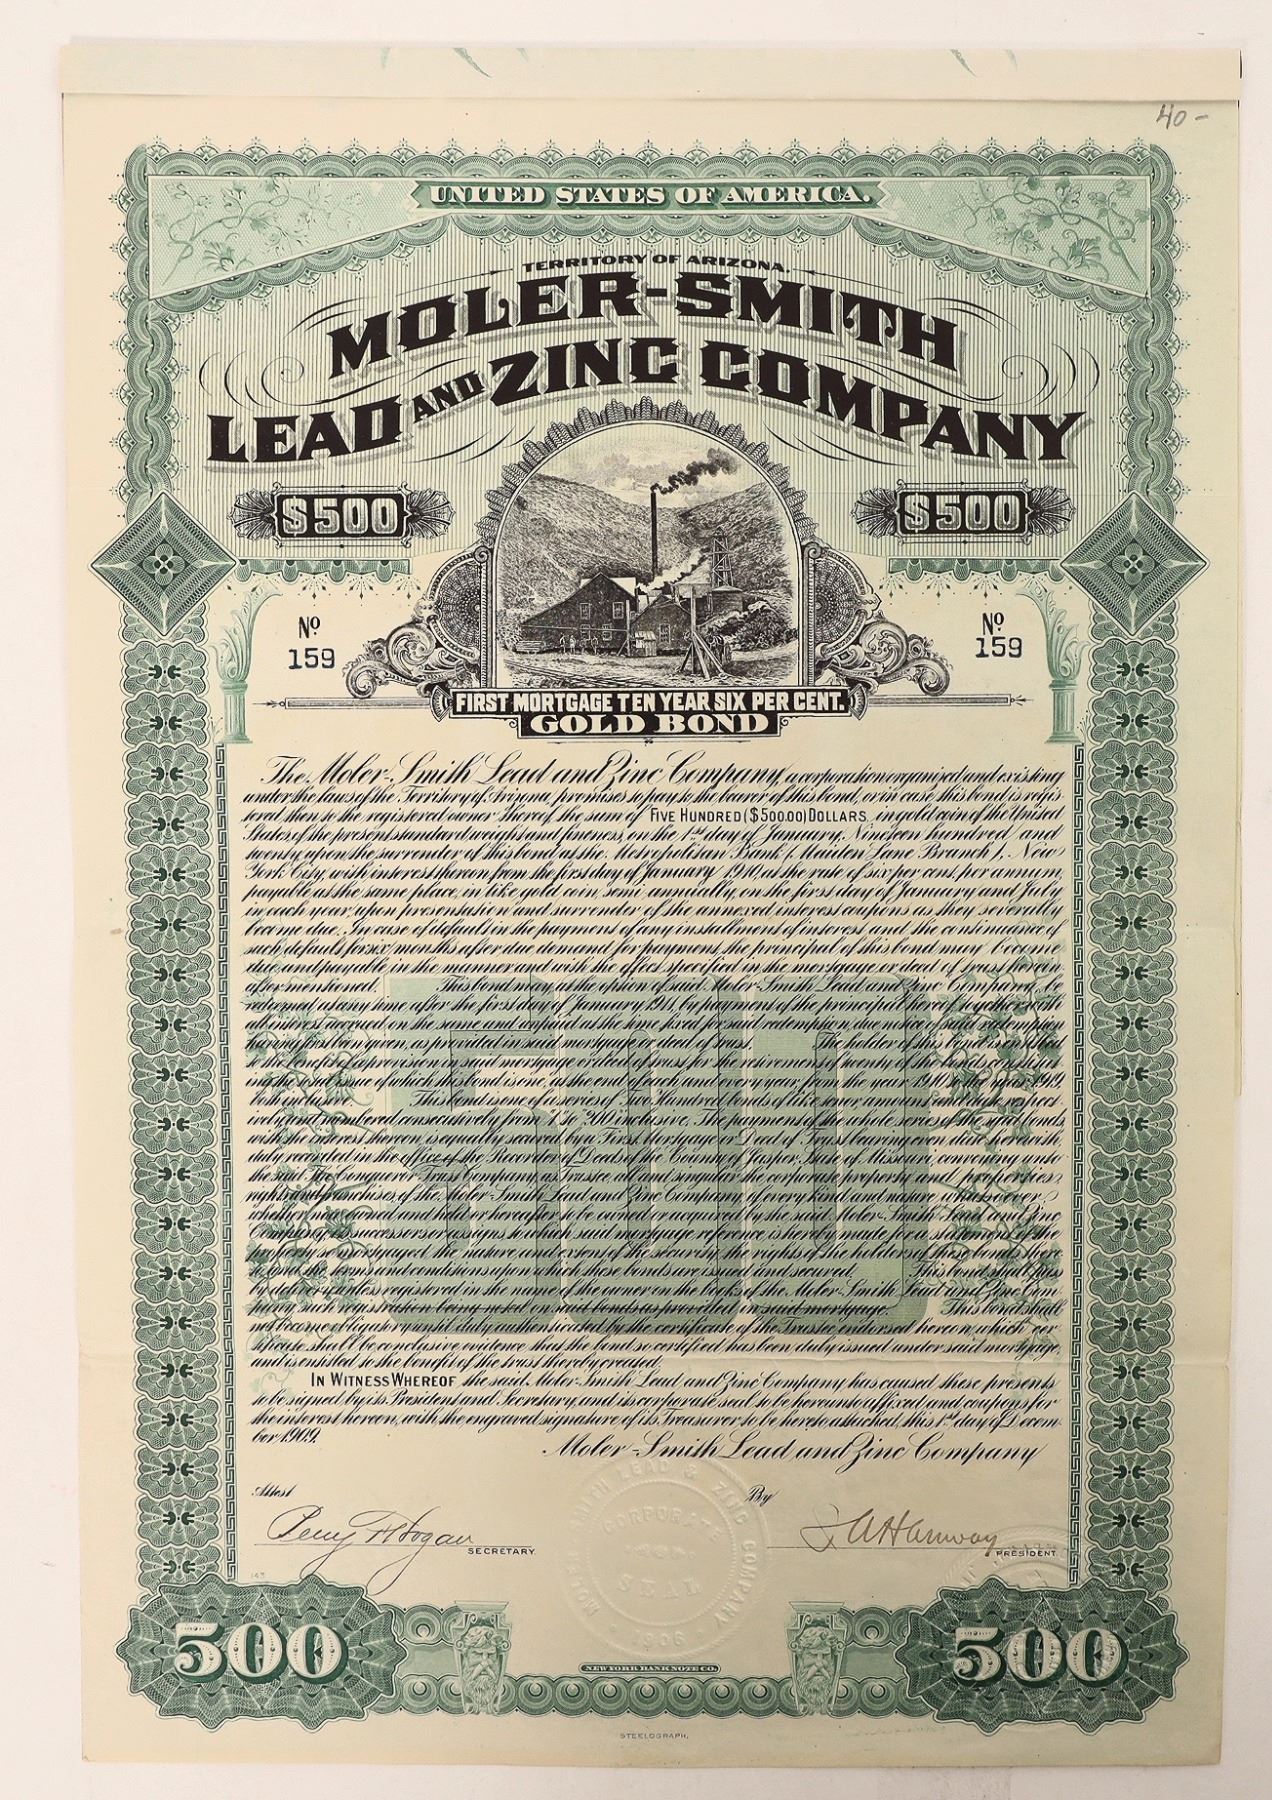 40-
UNITED STATES OF AMERICA.
TERRITORY OF ARIZONA.
MOLER-SMITH
LEAD AND ZINC COMPANY
$500 $500
No. 159 No. 159
FIRST MORTGAGE TEN YEAR SIX PER CENT.
GOLD BOND
The Moler-Smith Lead and Zinc Company, a corporation organized and existing
under the laws of the Territory of Arizona, promises to pay to the bearer of this bond, or in case this bond is regis-
tered then to the registered owner thereof, the sum of FIVE HUNDRED ($500.00) DOLLARS, in gold coin of the United
States of the present standard weight and fineness, on the 1st day of January, Nineteen hundred and
twenty upon the surrender of this bond at the Metropolitan Bank (Maiden Lane Branch), New
York City, with interest thereon from the first day of January 1910, at the rate of six per cent, per annum,
payable at the same place, in like gold coin, semi-annually, on the first day of January and July
in each year, upon presentation and surrender of the annexed interest coupons as they severally
become due. In case of default in the payment of any installment of interest and the continuance of
such default for six months after due demand for payment, the principal of this bond may become
due and payable in the manner and with the effect specified in the mortgage or deed of trust herein-
after mentioned. This bond may at the option of said Moler-Smith Lead and Zinc Company, be
retired at any time after the first day of January 1911, by payment of the principal hereof together with
all interest accrued on the same and unpaid at the time fixed for said redemption, due notice of said redemption
having first been given, as provided in said mortgage or deed of trust. The holder of this bond is entitled
to the benefit of a provision in said mortgage or deed of trust for the retirement of twenty of the bonds constitut-
ing the total issue of which this bond is one, at the end of each and every year, from the year 1910 to the year 1919,
both inclusive. This bond is one of a series of Two Hundred bonds of like tenor, amount and date, respect-
ively and numbered consecutively from "1" to "200" inclusive. The payment of the whole series of the said bonds,
with the interest thereon, is equally secured by a First Mortgage or Deed of Trust bearing even date herewith,
duly recorded in the office of the Recorder of Deeds of the County of Jasper, State of Missouri, conveying unto
the said The Conqueror Trust Company as Trustee all and singular the corporate property and properties,
rights and franchises, of the Moler-Smith Lead and Zinc Company, of every kind and nature whatsoever
whether now owned and held or hereafter to be owned or acquired by the said Moler-Smith Lead and Zinc
Company, its successors or assigns to which said mortgage reference is hereby made for a statement of the
property so mortgaged, the nature and extent of the security, the rights of the holders of these bonds there-
to and the terms and conditions upon which these bonds are issued and secured. This bond shall pass
by delivery unless registered in the name of the owner in the books of the Moler-Smith Lead and Zinc Com-
pany such registration being noted on said bonds as provided in said mortgage. This bond shall
not become obligatory until duly authenticated by the certificate of the Trustee endorsed hereon, which cer-
tificate shall be conclusive evidence that the bond so certified has been duly issued under said mortgage,
and is entitled to the benefit of the trust thereby created.
IN WITNESS WHEREOF the said Moler-Smith Lead and Zinc Company has caused these presents
to be signed by its President and Secretary, and its corporate seal to be hereunto affixed and coupons for
the interest hereon, with the engraved signature of its Treasurer, to be hereto attached, this 1st day of Decem-
ber 1909.
Moler-Smith Lead and Zinc Company
Attest By
Percy Hogan J A Hanway
SECRETARY. PRESIDENT.
MOLER SMITH LEAD & ZINC COMPANY
CORPORATE
SEAL
1906
143
500 500
NEW YORK BANK NOTE CO.
STEELOGRAPH.